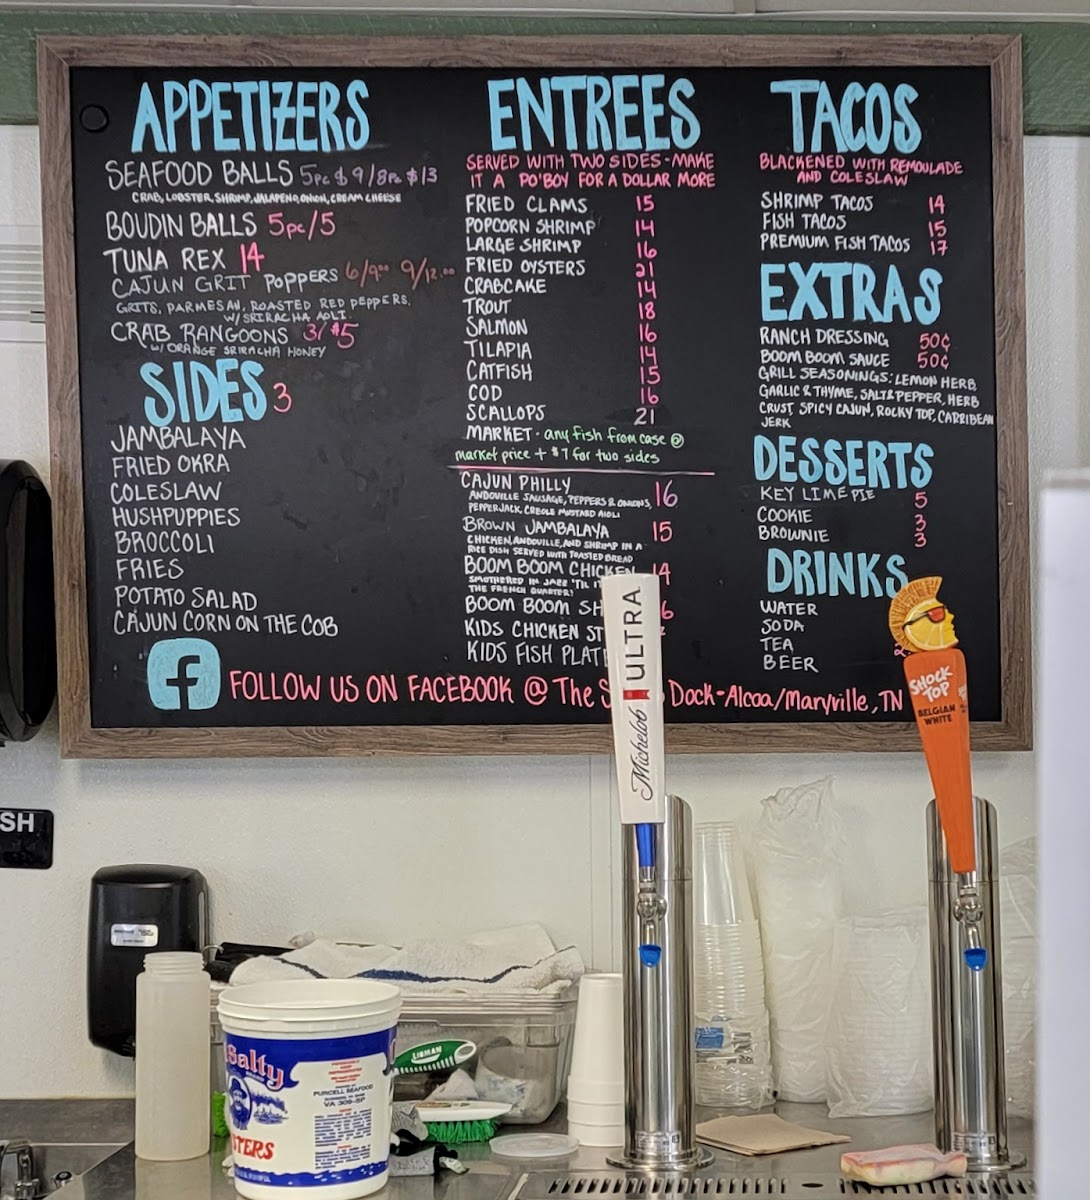 APPETIZERS
SEAFOOD BALLS 5pc $ 9/8pc $13
CRAB, LOBSTER, SHRIMP, JALAPENO, ONION, CREAM CHEESE
BOUDIN BALLS 5pc/5
TUNA REX 14
CAJUN GRIT POPPERS 6/9.00 9/12.00
GRITS, PARMESAN, ROASTED RED PEPPERS,
W/ SRIRACHA AOLI
CRAB RANGOONS 3/$5
W/ ORANGE SRIRACHA HONEY
SIDES 3
JAMBALAYA
FRIED OKRA
COLESLAW
HUSHPUPPIES
BROCCOLI
FRIES
POTATO SALAD
CAJUN CORN ON THE COB
ENTREES
SERVED WITH TWO SIDES-MAKE
IT A PO'BOY FOR A DOLLAR MORE
FRIED CLAMS 15
POPCORN SHRIMP 14
LARGE SHRIMP 16
FRIED OYSTERS 21
CRABCAKE 14
TROUT 18
SALMON 16
TILAPIA 14
CATFISH 15
COD 16
SCALLOPS 21
MARKET - any fish from case @
market price + $7 for two sides
CAJUN PHILLY 16
ANDOUILLE SAUSAGE, PEPPERS & ONIONS,
PEPPERJACK, CREOLE MUSTARD AIOLI
BROWN JAMBALAYA 15
CHICKEN, ANDOUILLE, AND SHRIMP IN A
RICE DISH SERVED WITH TOASTED BREAD
BOOM BOOM CHICKEN 14
SMOTHERED IN JAZZ 'TIL IT
THE FRENCH QUARTER!
BOOM BOOM SH 6
KIDS CHICKEN ST
KIDS FISH PLAT
TACOS
BLACKENED WITH REMOULADE
AND COLESLAW
SHRIMP TACOS 14
FISH TACOS 15
PREMIUM FISH TACOS 17
EXTRAS
RANCH DRESSING 50¢
BOOM BOOM SAUCE 50¢
GRILL SEASONINGS: LEMON HERB
GARLIC & THYME, SALT & PEPPER, HERB
CRUST, SPICY CAJUN, ROCKY TOP, CARRIBEAN
JERK
DESSERTS
KEY LIME PIE 5
COOKIE 3
BROWNIE 3
DRINKS
WATER
SODA
TEA
BEER
f FOLLOW US ON FACEBOOK @ The S Dock-Alcoa/Maryville, TN
Michelob ULTRA
SHOCK
TOP
BELGIAN
WHITE
SH
Salty
STERS
PURCELL SEAFOOD
VA 309-SP
LIBMAN